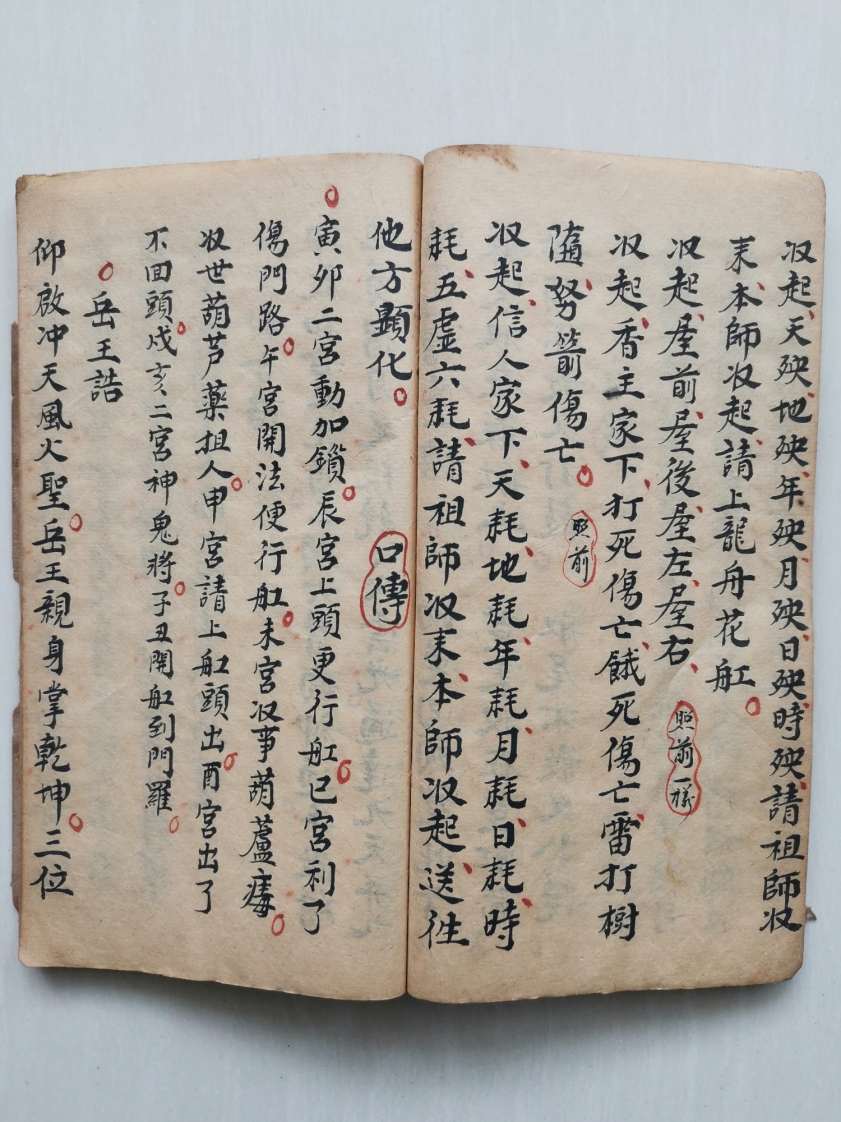 収起、天殃、地殃、年殃、月殃、日殃、時殃、請祖師収
来、本師収起、請上龍舟花舡。
収起、屋前屋後、屋左、屋右、
照前一樣
収起、香主家下、打死傷亡、餓死傷亡、雷打樹
隨、努箭傷亡。
照前
収起、信人家下、天耗、地耗、年耗、月耗、日耗、時
耗、五虛六耗、請祖師収来、本師収起、送往
他方顯化。
口傳
寅卯二宮動加鎖。辰宮上頭更行舡。巳宮利了
傷門路。午宮開法便行舡。未宮収事葫蘆
収世葫芦藥担人。申宮請上舡頭出。酉宮出了
不回頭。戍亥二宮神鬼將。子丑開舡到門羅。
岳王誥
仰啟冲天風火聖。岳王親身掌乾坤。三位